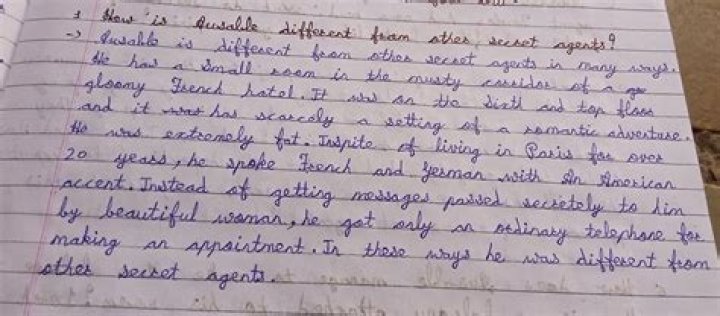 1 How is Ausable different from other secret agents?
-> Ausable is different from other secret agents in many ways.
He has a small room in the musty corridor of a
gloomy French hotel. It was on the sixth and top floor
and it was has scarcely a setting of a romantic adventure.
He was extremely fat. Inspite of living in Paris for over
20 years, he spoke French and German with an American
accent. Instead of getting messages passed secretely to him
by beautiful woman, he got only an ordinary telephone for
making an appointment. In these ways he was different from
other secret agents.